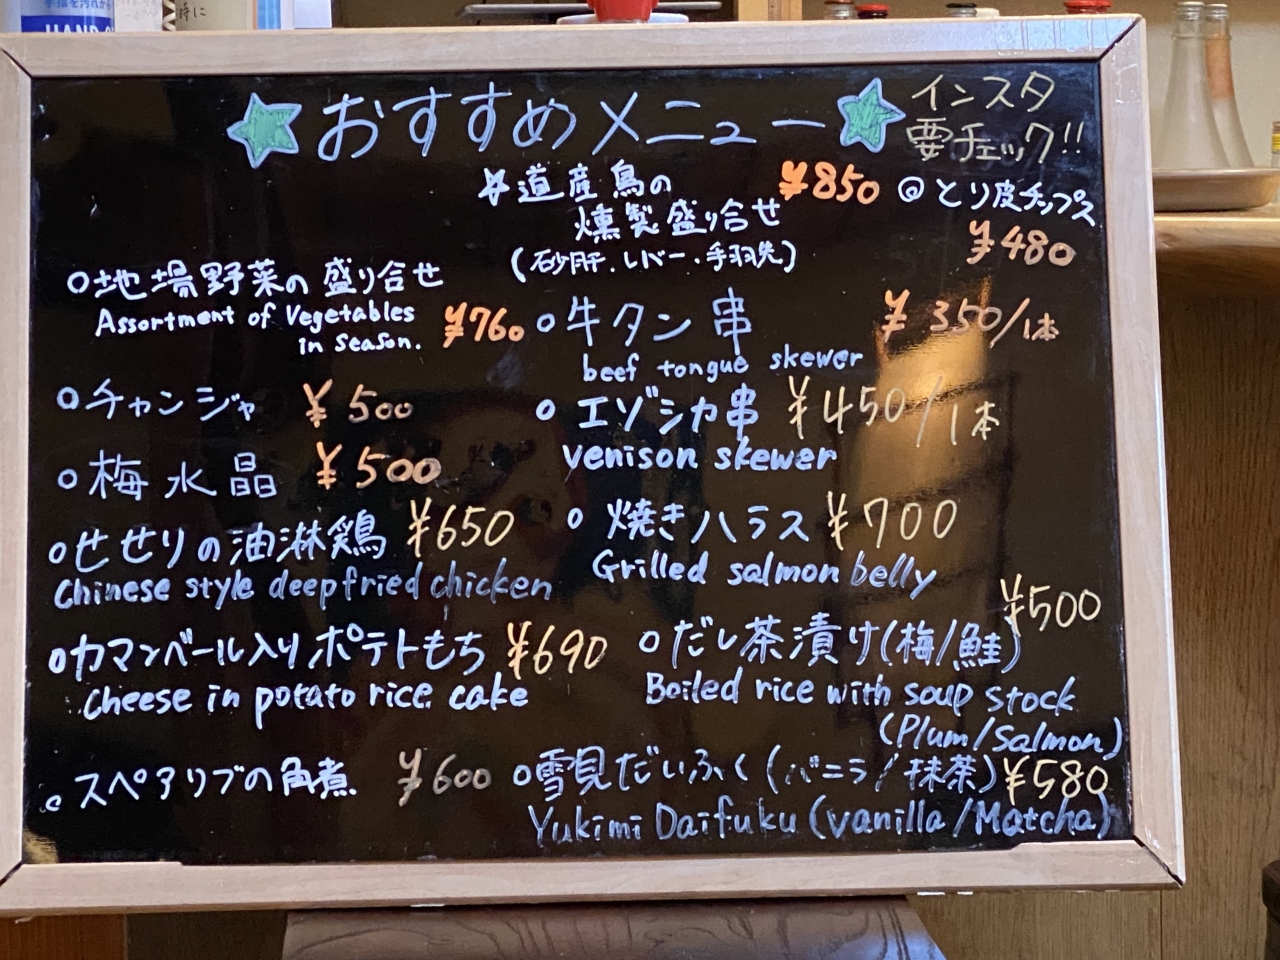 おすすめメニュー
インスタ
要チェック!!
道産鳥の
燻製盛り合せ
(砂肝.レバー.手羽先)
¥850
@とり皮チップス
¥480
○地場野菜の盛り合せ
Assortment of Vegetables
in Season.
¥760
○牛タン串 ¥350/1本
beef tongue skewer
○チャンジャ ¥500
○エゾシカ串 ¥450/1本
venison skewer
○梅水晶 ¥500
○せせりの油淋鶏 ¥650
Chinese style deep fried chicken
○焼きハラス ¥700
Grilled salmon belly
○カマンベール入りポテトもち ¥690
Cheese in potato rice cake
¥500
○だし茶漬け(梅/鮭)
Boiled rice with soup stock
(Plum/Salmon)
スペアリブの角煮 ¥600
○雪見だいふく(バニラ/抹茶)¥580
Yukimi Daifuku (vanilla/Matcha)